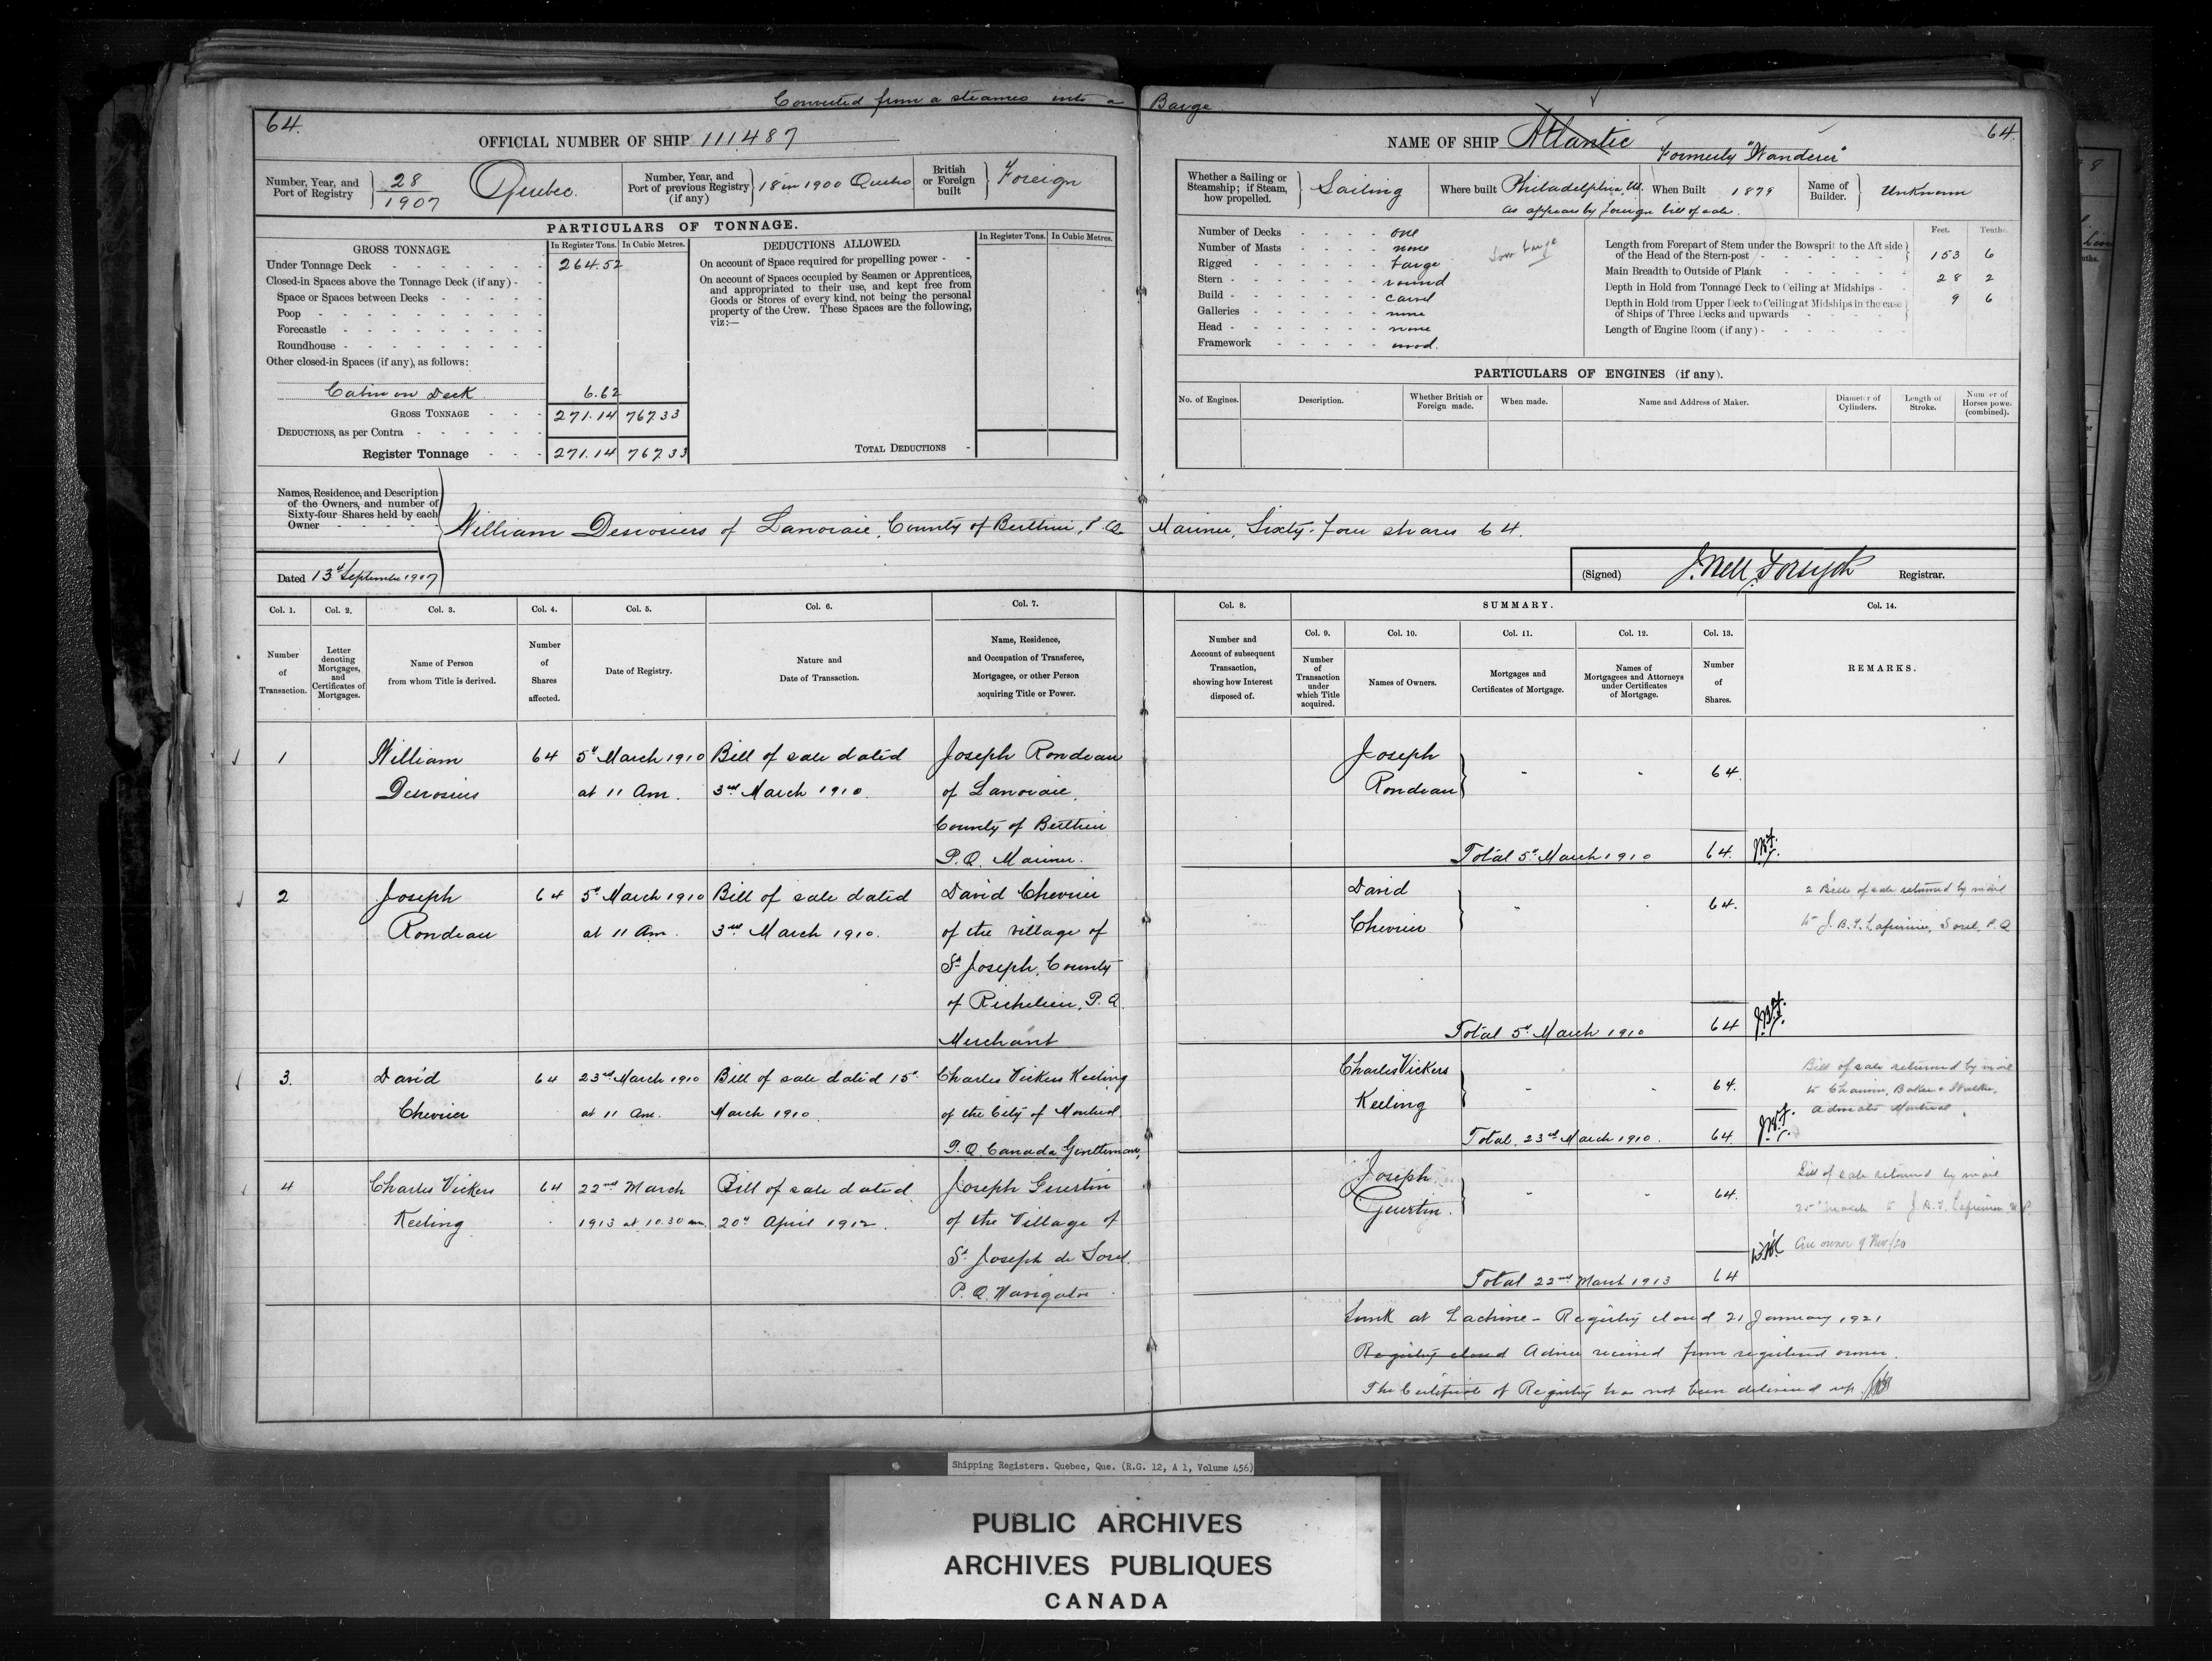 Converted from a steamer into a Barge
64.
OFFICIAL NUMBER OF SHIP 111487
Number, Year, and Port of Registry 28/1907 Quebec.
Number, Year, and Port of previous Registry (if any) 18 in 1900 Quebec
British or Foreign built Foreign
PARTICULARS OF TONNAGE.
GROSS TONNAGE. In Register Tons. In Cubic Metres.
Under Tonnage Deck 264.52
Closed-in Spaces above the Tonnage Deck (if any)
Space or Spaces between Decks
Poop
Forecastle
Roundhouse
Other closed-in Spaces (if any), as follows:
Cabin on Deck 6.62
GROSS TONNAGE 271.14 767.33
DEDUCTIONS, as per Contra
Register Tonnage 271.14 767.33
DEDUCTIONS ALLOWED. In Register Tons. In Cubic Metres.
On account of Space required for propelling power
On account of Spaces occupied by Seamen or Apprentices,
and appropriated to their use, and kept free from
Goods or Stores of every kind, not being the personal
property of the Crew. These Spaces are the following,
viz:—
TOTAL DEDUCTIONS
NAME OF SHIP Atlantic
Formerly "Wanderer"
64.
Whether a Sailing or Steamship; if Steam, how propelled. Sailing
Where built Philadelphia, U.
When Built 1879
as appears by foreign bill of sale.
Name of Builder. Unknown
Number of Decks one
Number of Masts none
Rigged barge
Tow barge
Stern round
Build carvel
Galleries none
Head none
Framework wood.
Feet. Tenths.
Length from Forepart of Stem under the Bowsprit to the Aft side
of the Head of the Stern-post 153 6
Main Breadth to Outside of Plank 28 2
Depth in Hold from Tonnage Deck to Ceiling at Midships 9 6
Depth in Hold from Upper Deck to Ceiling at Midships in the case
of Ships of Three Decks and upwards
Length of Engine Room (if any)
PARTICULARS OF ENGINES (if any).
No. of Engines. Description. Whether British or Foreign made. When made. Name and Address of Maker. Diameter of Cylinders. Length of Stroke. Number of Horses power (combined).
Names, Residence, and Description
of the Owners, and number of
Sixty-four Shares held by each
Owner
William Desrosiers of Lanoraie, County of Berthier, P.Q. Mariner, Sixty-four shares 64.
Dated 13th September 1907
(Signed) J. Bell Forsyth Registrar.
Col. 1. Col. 2. Col. 3. Col. 4. Col. 5. Col. 6. Col. 7.
Number of Transaction.
Letter denoting Mortgages, and Certificates of Mortgages.
Name of Person from whom Title is derived.
Number of Shares affected.
Date of Registry.
Nature and Date of Transaction.
Name, Residence, and Occupation of Transferee, Mortgagee, or other Person acquiring Title or Power.
Col. 8. SUMMARY. Col. 14.
Col. 9. Col. 10. Col. 11. Col. 12. Col. 13.
Number and Account of subsequent Transaction, showing how Interest disposed of.
Number of Transaction under which Title acquired.
Names of Owners.
Mortgages and Certificates of Mortgage.
Names of Mortgagees and Attorneys under Certificates of Mortgage.
Number of Shares.
REMARKS.
1 William 64 5th March 1910 Bill of sale dated Joseph Rondeau
Desrosiers at 11 Am. 3rd March 1910. of Lanoraie,
County of Berthier
P.Q. Mariner.
Joseph
Rondeau 64.
Total 5th March 1910 64.
2 Joseph 64 5th March 1910 Bill of sale dated David Chevrier
Rondeau at 11 Am. 3rd March 1910. of the village of
St Joseph, County
of Richelieu, P.Q.
Merchant
David
Chevrier 64.
Total 5th March 1910 64
2 Bills of sale returned by mail
to J. B. T. Lafrenière, Sorel, P.Q
3. David 64 23rd March 1910 Bill of sale dated 15th Charles Vickers Keeling
Chevrier at 11 Am. March 1910 of the City of Montreal
P.Q. Canada, Gentleman,
Charles Vickers
Keeling 64.
Total, 23rd March 1910. 64.
Bill of sale returned by mail
to Baker & Walker,
Montreal
4 Charles Vickers 64 22nd March Bill of sale dated Joseph Guertin
Keeling 1913 at 10.30 am. 20th April 1912. of the Village of
St Joseph de Sorel.
P.Q. Navigator
Joseph
Guertin. 64.
Total 22nd March 1913 64
Bill of sale returned by mail
25th March to J. B. T. Lafrenière N.P.
owner 9 Nov/20
Sunk at Lachine - Registry closed 21 January 1921
Registry closed Advice received from registered owner.
The Certificate of Registry has not been delivered up.
Shipping Registers. Quebec, Que. (R.G. 12, A 1, Volume 456)
PUBLIC ARCHIVES
ARCHIVES PUBLIQUES
CANADA